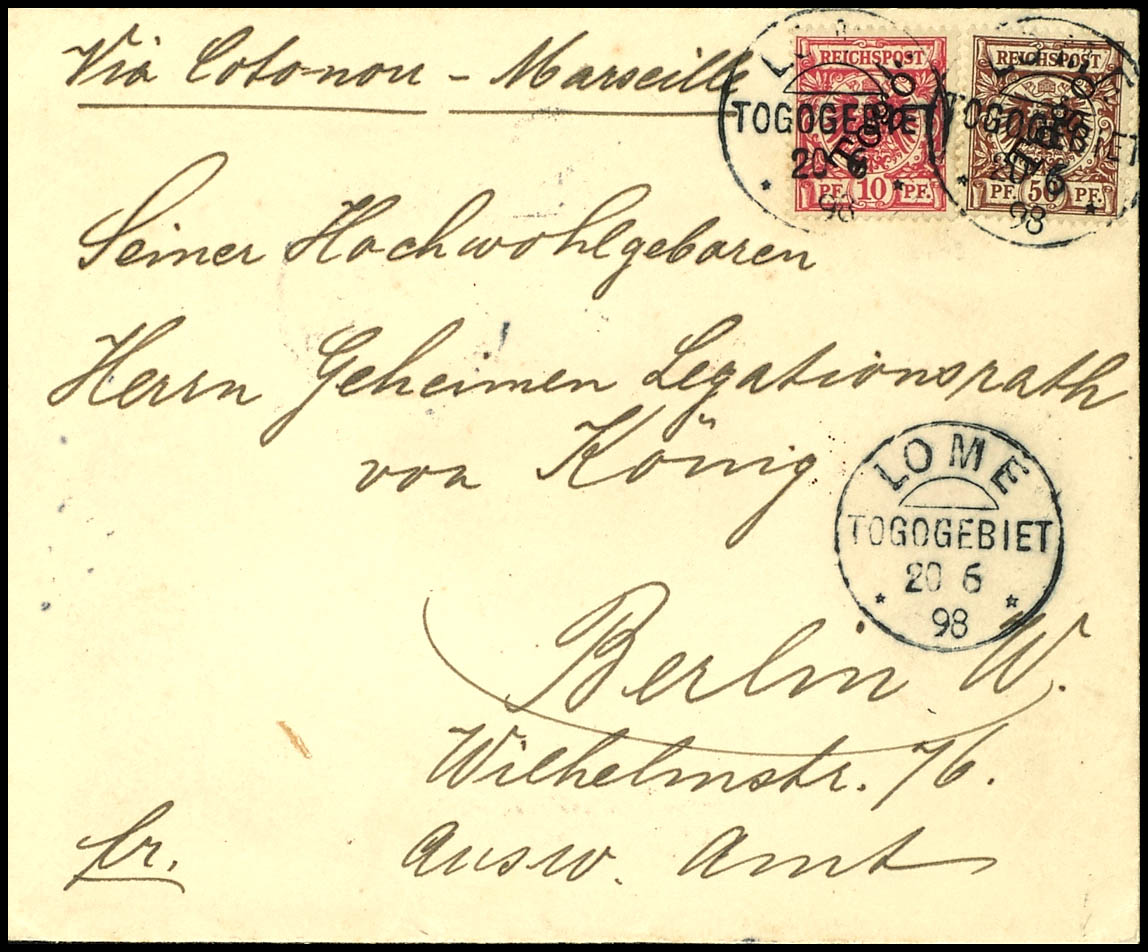 Via Cotonou - Marseille
REICHSPOST
Togo
PF. 10 PF.
REICHSPOST
Togo
PF. 50 PF.
TOGOGEBIET
20 6
98
LOME
TOGOGEBIET
20 6
98
Seiner Hochwohlgeboren
Herrn Geheimen Legationsrath
von König
LOME
TOGOGEBIET
20 6
98
Berlin W.
Wilhelmstr. 76.
fr.
Ausw. Amt